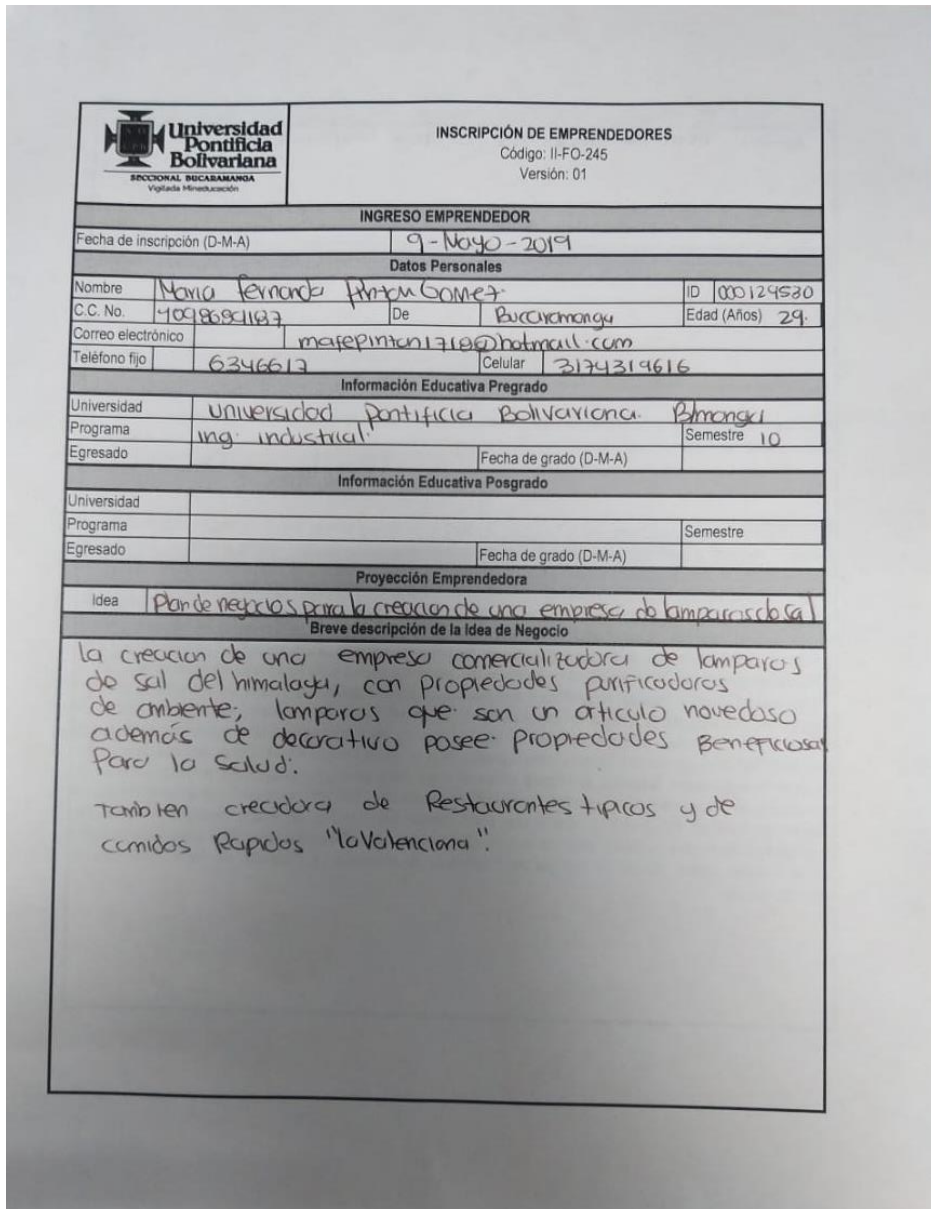 Universidad
Pontificia
Bolivariana
SECCIONAL BUCARAMANGA
Vigilada Mineducación
INSCRIPCIÓN DE EMPRENDEDORES
Código: II-FO-245
Versión: 01
INGRESO EMPRENDEDOR
Fecha de inscripción (D-M-A) 9-Mayo-2019
Datos Personales
Nombre Maria fernanda Gomez. ID 000124530
C.C. No. De Bucaramanga Edad (Años) 29.
Correo electrónico mafepinton1718@hotmail.com
Teléfono fijo 6346617 Celular 3174319616
Información Educativa Pregrado
Universidad Universidad Pontificia Bolivariana. B/manga
Programa ing. industrial. Semestre 10
Egresado Fecha de grado (D-M-A)
Información Educativa Posgrado
Universidad
Programa Semestre
Egresado Fecha de grado (D-M-A)
Proyección Emprendedora
Idea Plan de negocios para la creacion de una empresa de lamparas de sal
Breve descripción de la Idea de Negocio
la creacion de una empresa comercializadora de lamparas
de sal del himalaya, con propiedades purificadoras
de ambiente, lamparas que son un articulo novedoso
además de decorativo posee propiedades Beneficiosas
Para la salud.
Tambien creadora de Restaurantes tipicos y de
comidas Rapidas "la Valenciana".